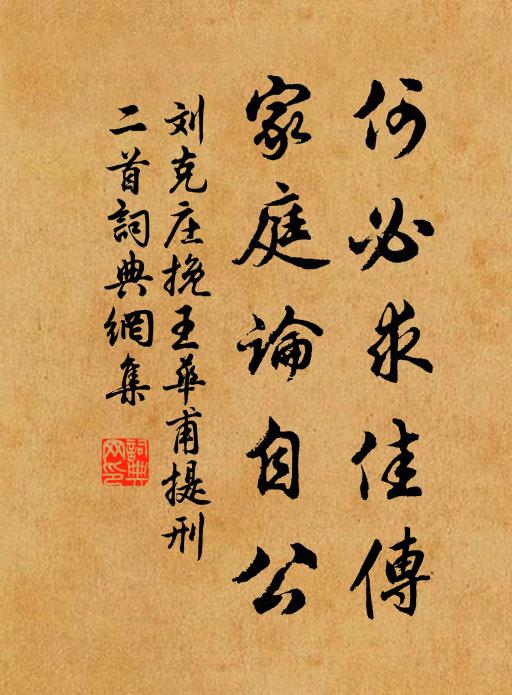 何必求佳傳
家庭論自公
刘克庄挽王華甫提刑
二首詞典網集
詞典
网印